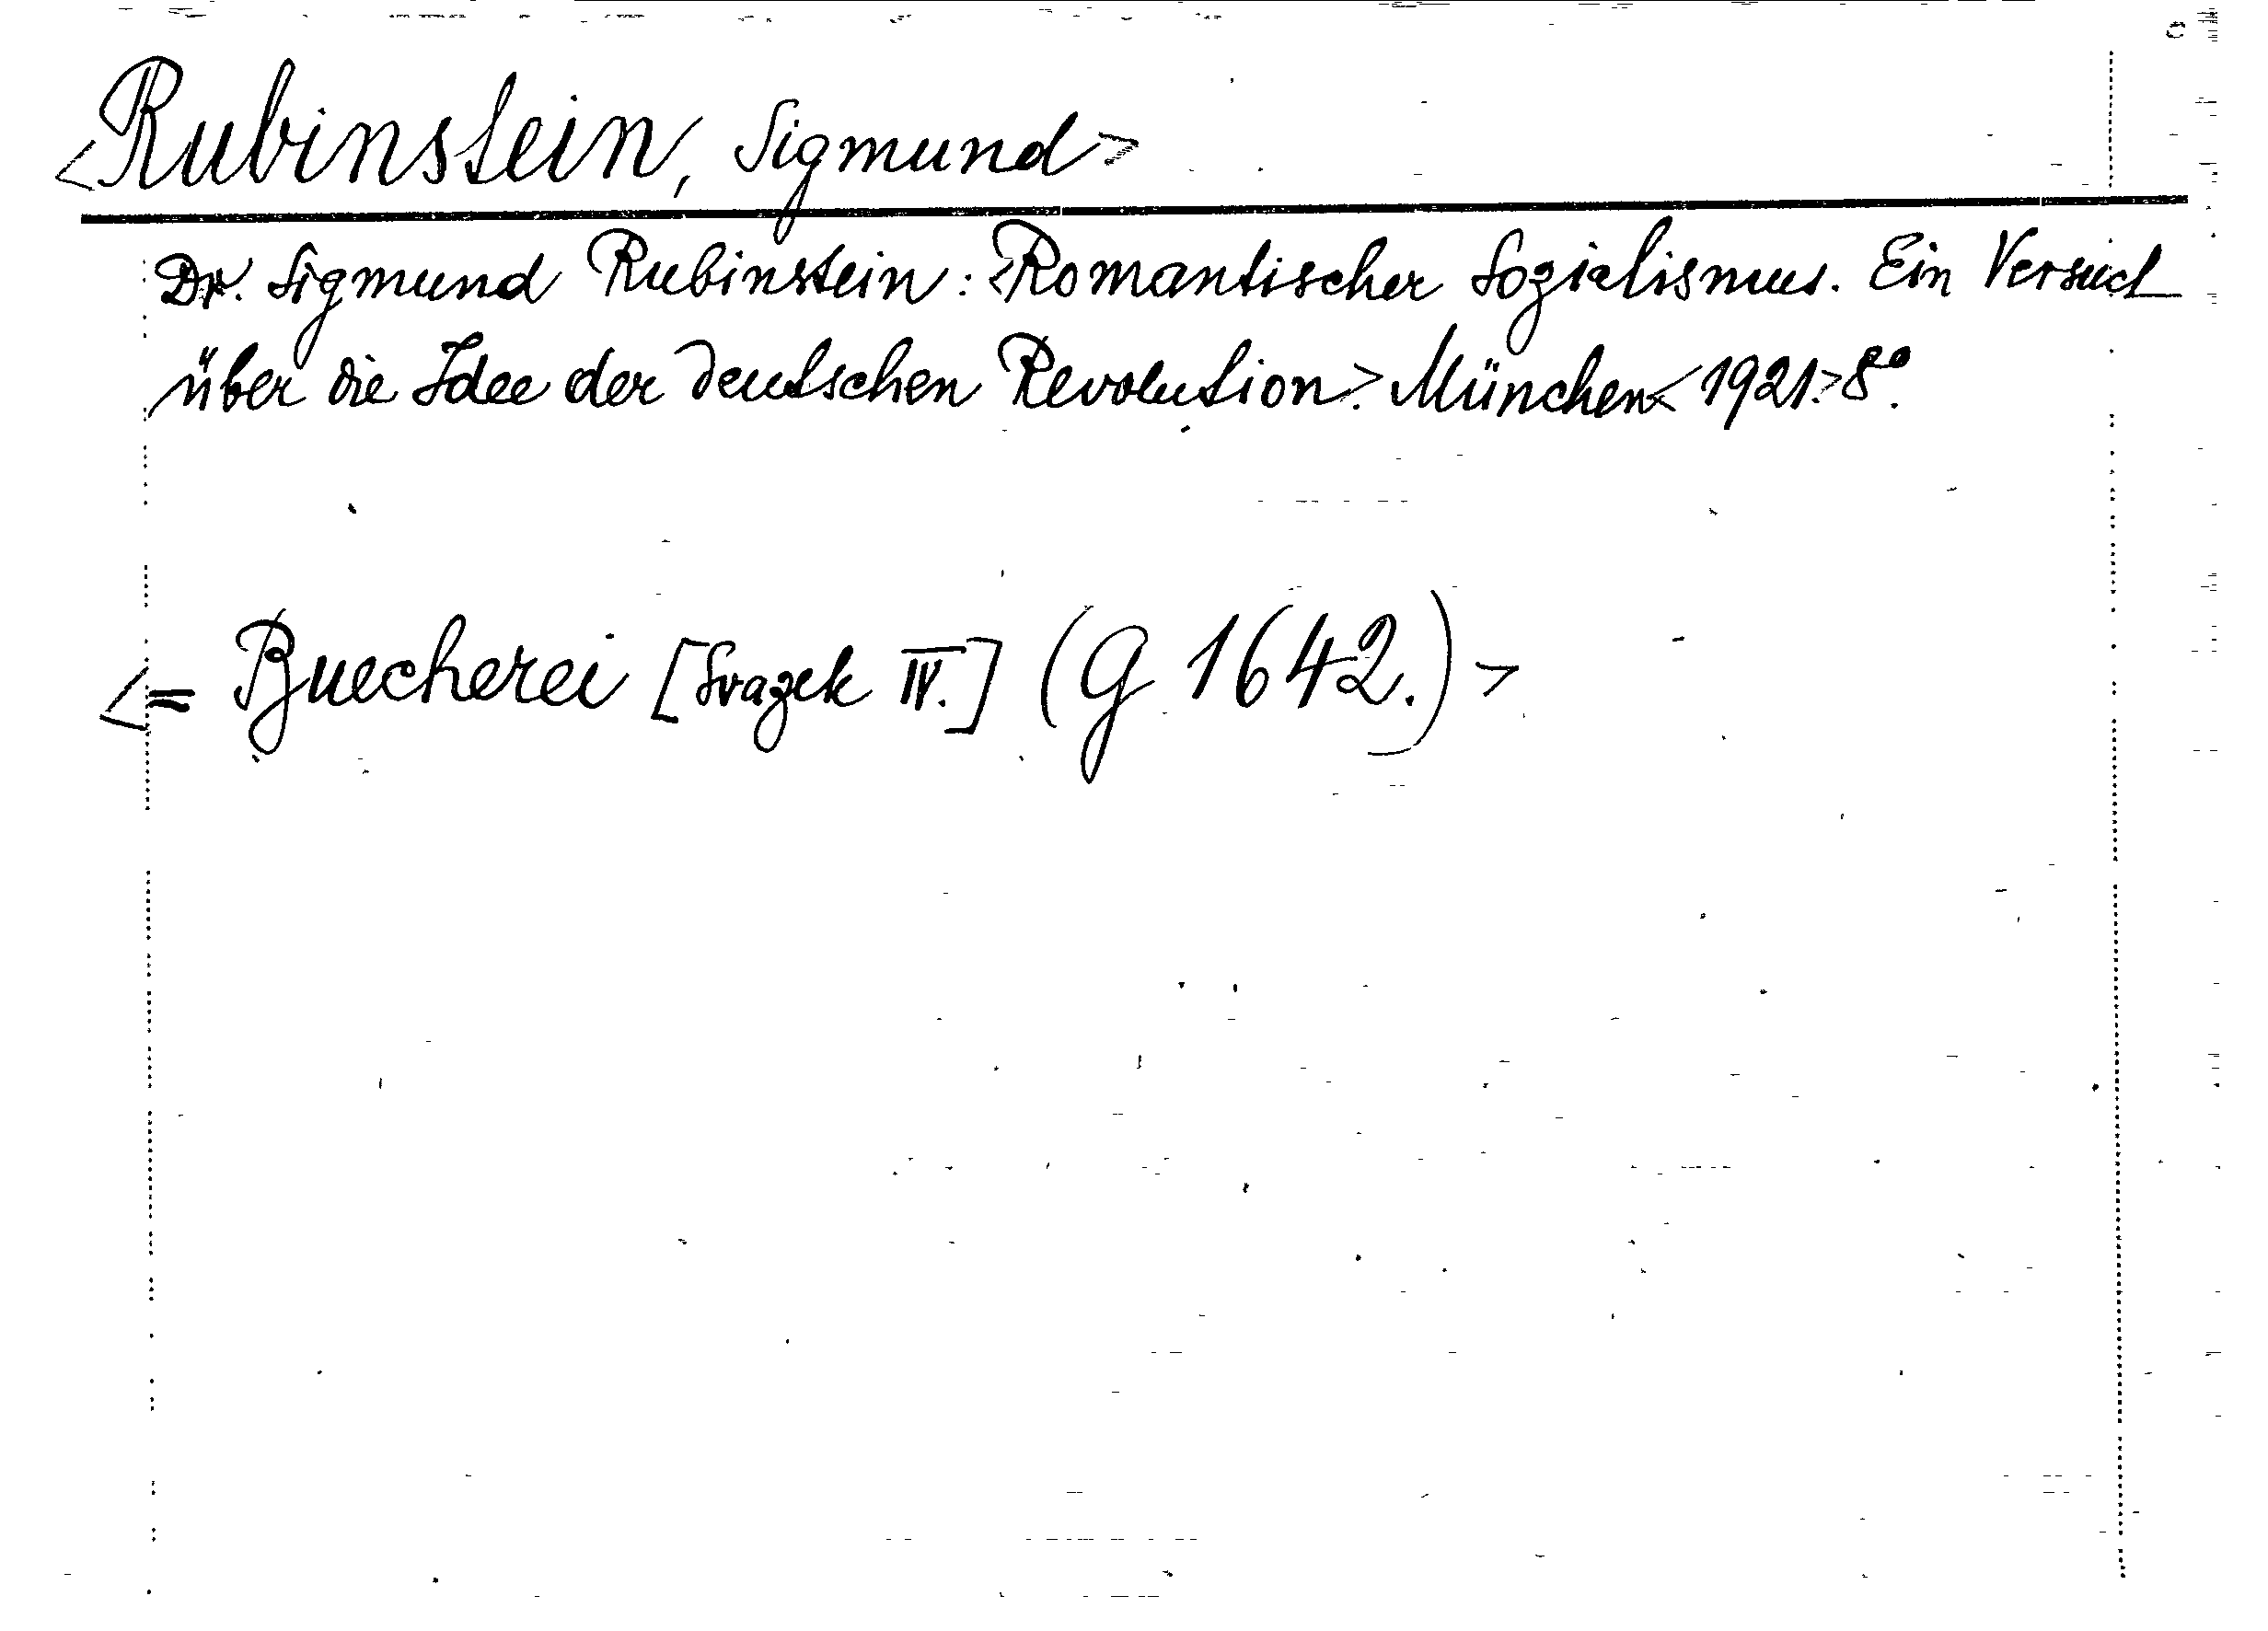 <Rubinstein, Sigmund>
Dr. Sigmund Rubinstein: <Romantischer Sozialismus. Ein Versuch
über die Idee der deutschen Revolution.> München < 1921.> 8º.
<= Buecherei [Svazek IV.] (G 1642.) >